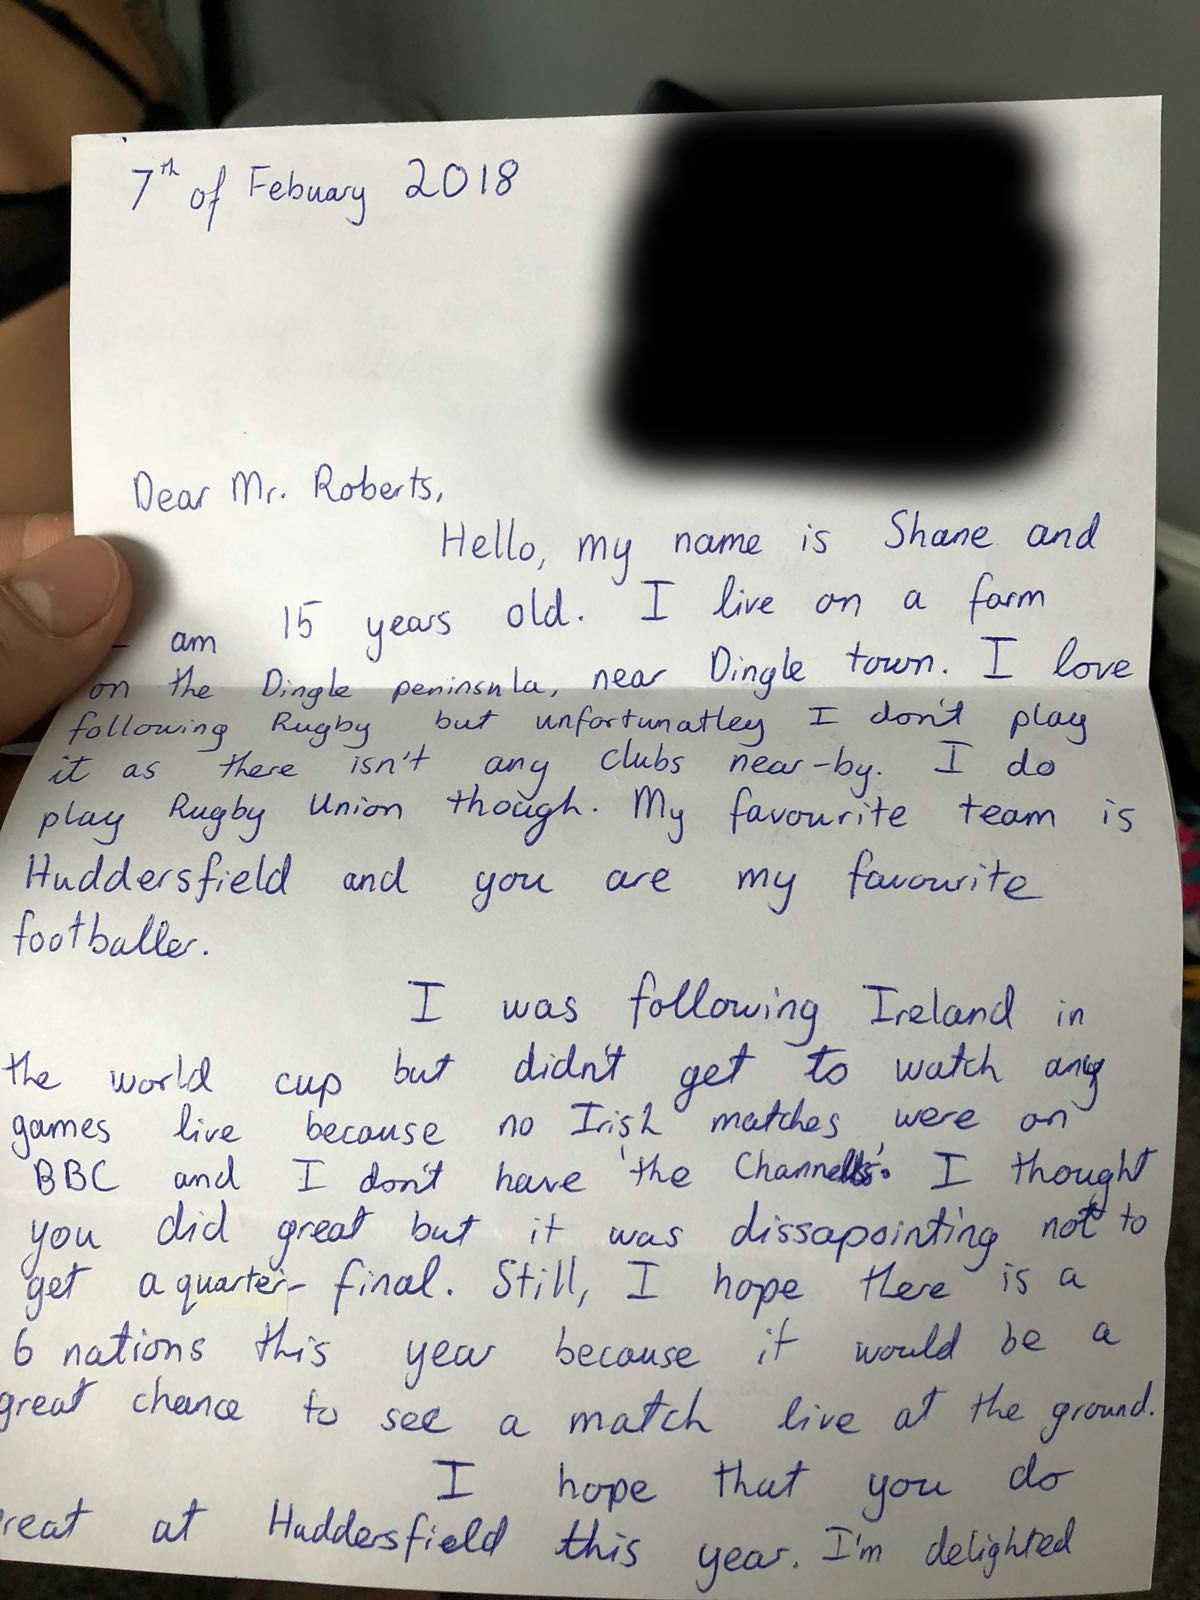 7th of Febuary 2018
Dear Mr. Roberts,
Hello, my name is Shane and
am 15 years old. I live on a farm
on the Dingle peninsula, near Dingle town. I love
following Rugby but unfortunatley I don't play
it as there isn't any clubs near-by. I do
play Rugby Union though. My favourite team is
Huddersfield and you are my favourite
footballer.
I was following Ireland in
the world cup but didn't get to watch any
games live because no Irish matches were on
BBC and I don't have 'the Channells'. I thought
you did great but it was dissapointing not to
get a quarter-final. Still, I hope there is a
6 nations this year because it would be a
great chance to see a match live at the ground.
I hope that you do
reat at Huddersfield this year. I'm delighted